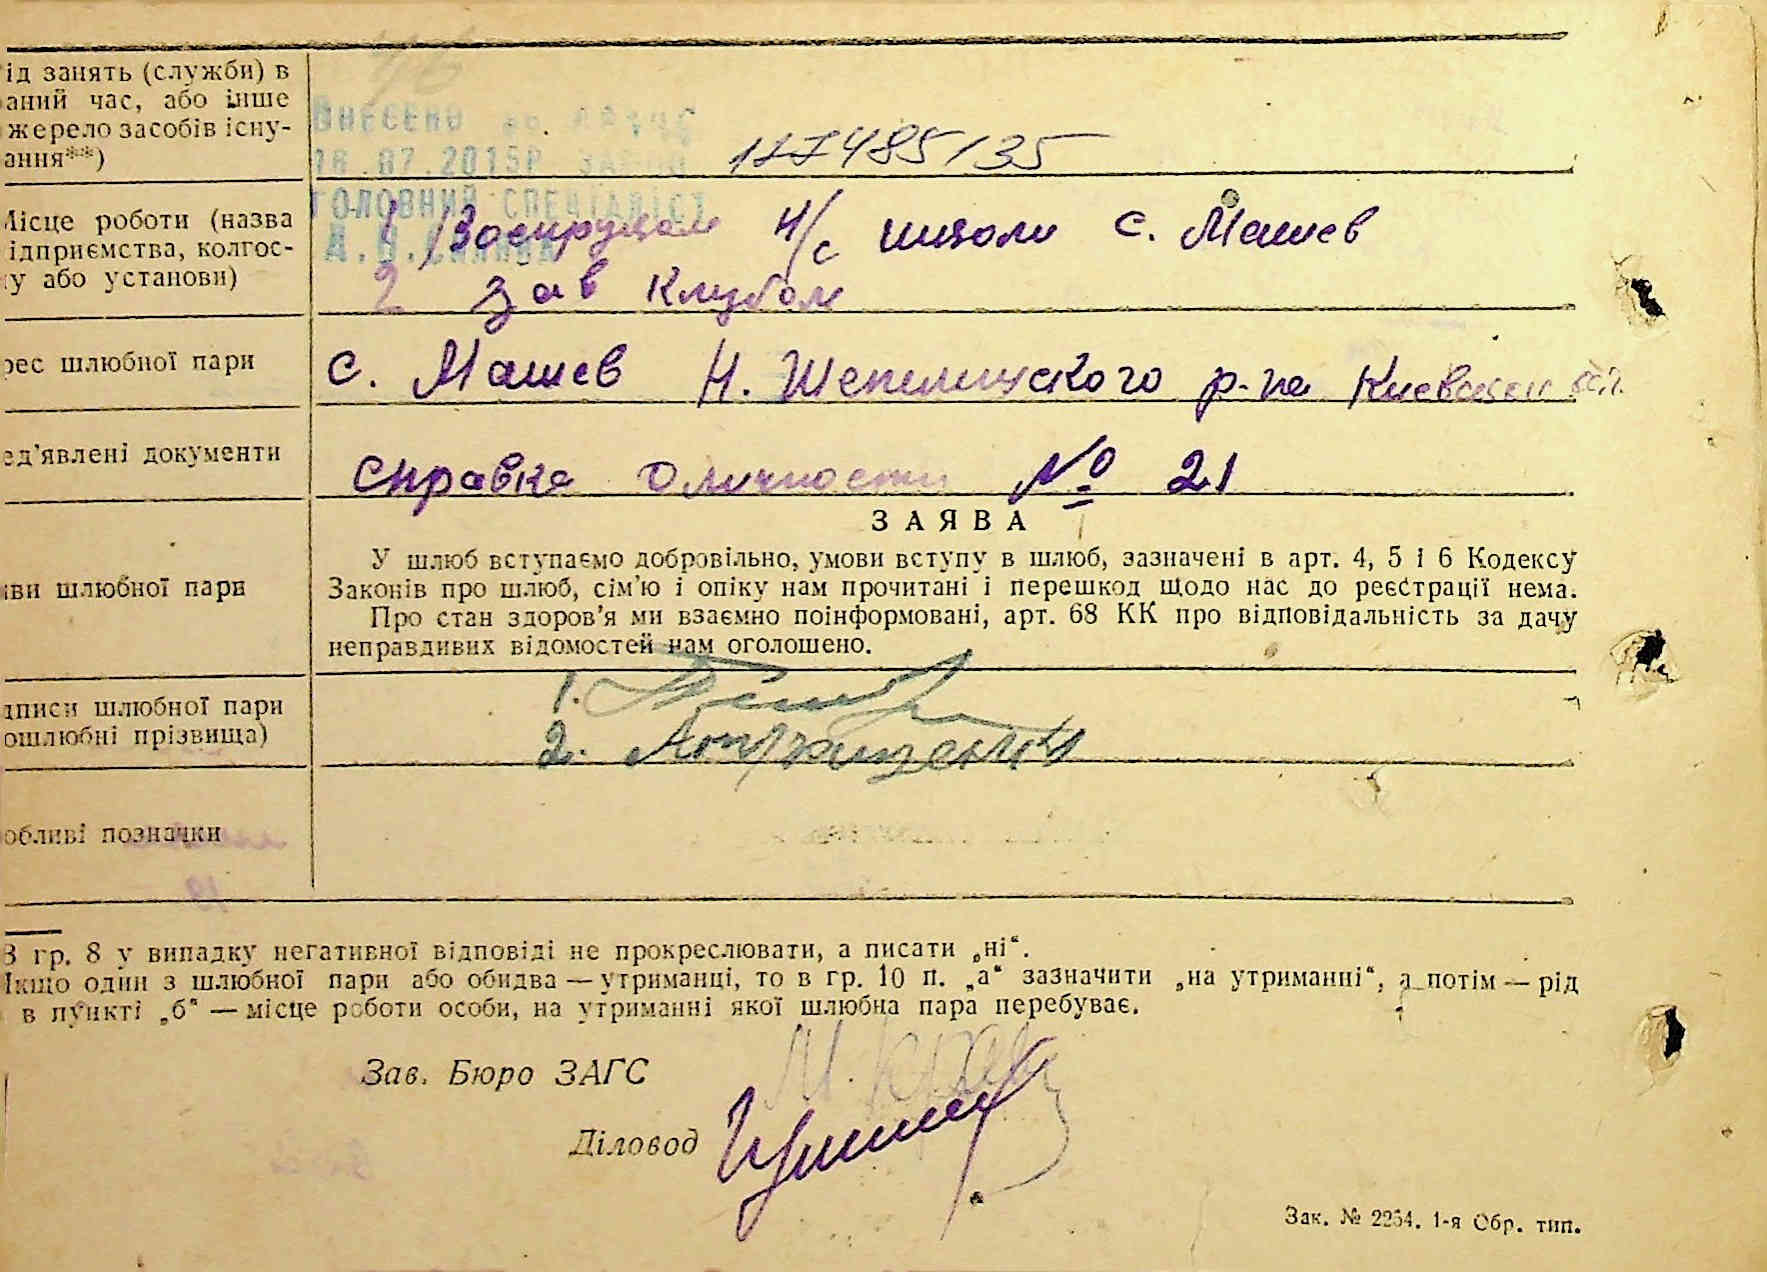 ід занять (служби) в
аний час, або інше
жерело засобів існу-
ання**)
ВНЕСЕНО до ДРАЦС
18.07.2015Р
ГОЛОВНИЙ СПЕЦІАЛІСТ
485135
Місце роботи (назва
ідприємства, колгос-
у або установи)
1 Военруком н/с школи с. Машев
2 зав клубом
рес шлюбної пари
с. Машев Н. Шепелицкого р-на Киевской обл.
ед'явлені документи
справка о личности № 21
ЗАЯВА
іви шлюбної пари
У шлюб вступаємо добровільно, умови вступу в шлюб, зазначені в арт. 4, 5 і 6 Кодексу
Законів про шлюб, сім'ю і опіку нам прочитані і перешкод щодо нас до реєстрації нема.
Про стан здоров'я ми взаємно поінформовані, арт. 68 КК про відповідальність за дачу
неправдивих відомостей нам оголошено.
дписи шлюбної пари
ошлюбні прізвища)
1.
2.
обливі позначки
В гр. 8 у випадку негативної відповіді не прокреслювати, а писати „ні“.
Якщо один з шлюбної пари або обидва — утриманці, то в гр. 10 п. „а“ зазначити „на утриманні“, а потім — рід
в пункті „б“ — місце роботи особи, на утриманні якої шлюбна пара перебуває.
Зав. Бюро ЗАГС
Діловод
Зак. № 2264. 1-я Обр. тип.